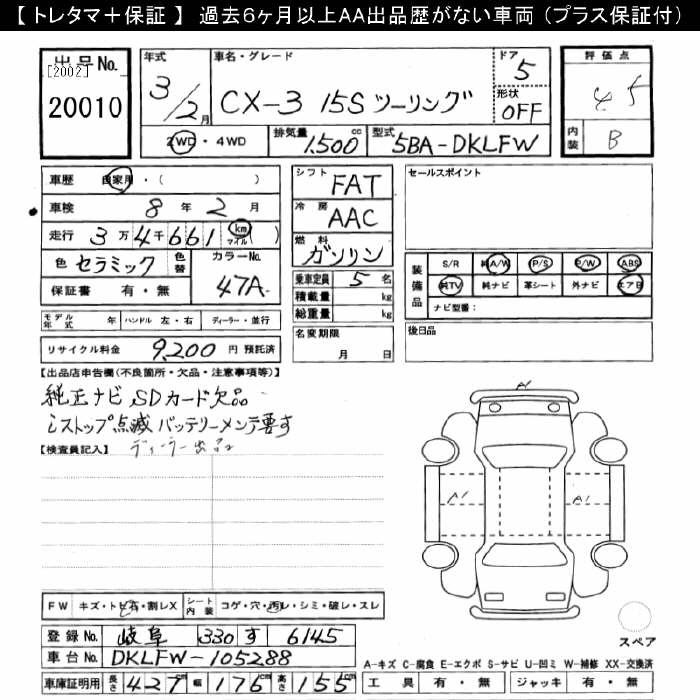 【 トレタマ＋保証 】 過去6ヶ月以上AA出品歴がない車両 (プラス保証付)
出品No.
[2002]
20010
年式
3/2月
車名・グレード
CX-3 15Sツーリング
ドア
5
形状
OFF
2WD・4WD
排気量
1,500cc
型式
5BA-DKLFW
評価点
4.5
内装
B
車歴 自家用・( )
車検 8年 2月
走行 3万4千661 km マイル ( )
色 セラミック 色替
カラーNo.
47A
保証書 有・無
モデル年式 年 ハンドル 左・右 ディーラー・並行
リサイクル料金 9,200円 預託済
シフト
FAT
冷房
AAC
燃料
ガソリン
乗車定員 5名
積載量 kg
総重量 kg
名変期限
月 日
セールスポイント
装備品
S/R 純A/W P/S P/W ABS
純TV 純ナビ 革シート 外ナビ エアB
ナビ型番：
後日品
【出品店申告欄(不良箇所・欠品・注意事項等)】
純正ナビ SDカード欠品
iストップ点滅 バッテリーメンテ要す
【検査員記入】 ディーラー出品
A1
A1
FW キズ・トビ石・割レX シート内装 コゲ・穴・汚レ・シミ・破レ・スレ
登録No. 岐阜 330 す 6145
車台No. DKLFW-105288
車庫証明用 長さ 427cm 幅 176cm 高さ 155cm
スペア
A-キズ C-腐食 E-エクボ S-サビ U-凹ミ W-補修 XX-交換済
工具 有・無 ジャッキ 有・無